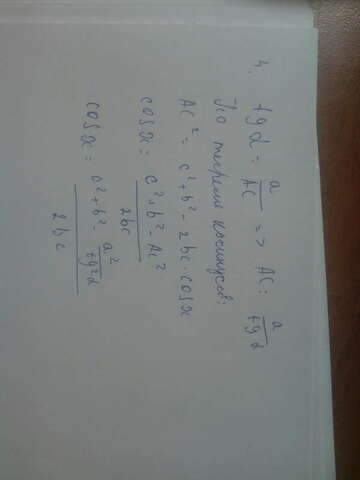 4. tg α = a/AC => AC = a/tg α
По теореме косинусов:
AC² = c² + b² - 2bc · cos x
cos x = (c² + b² - AC²)/2bc
cos x = (c² + b² - a²/tg²α)/2bc